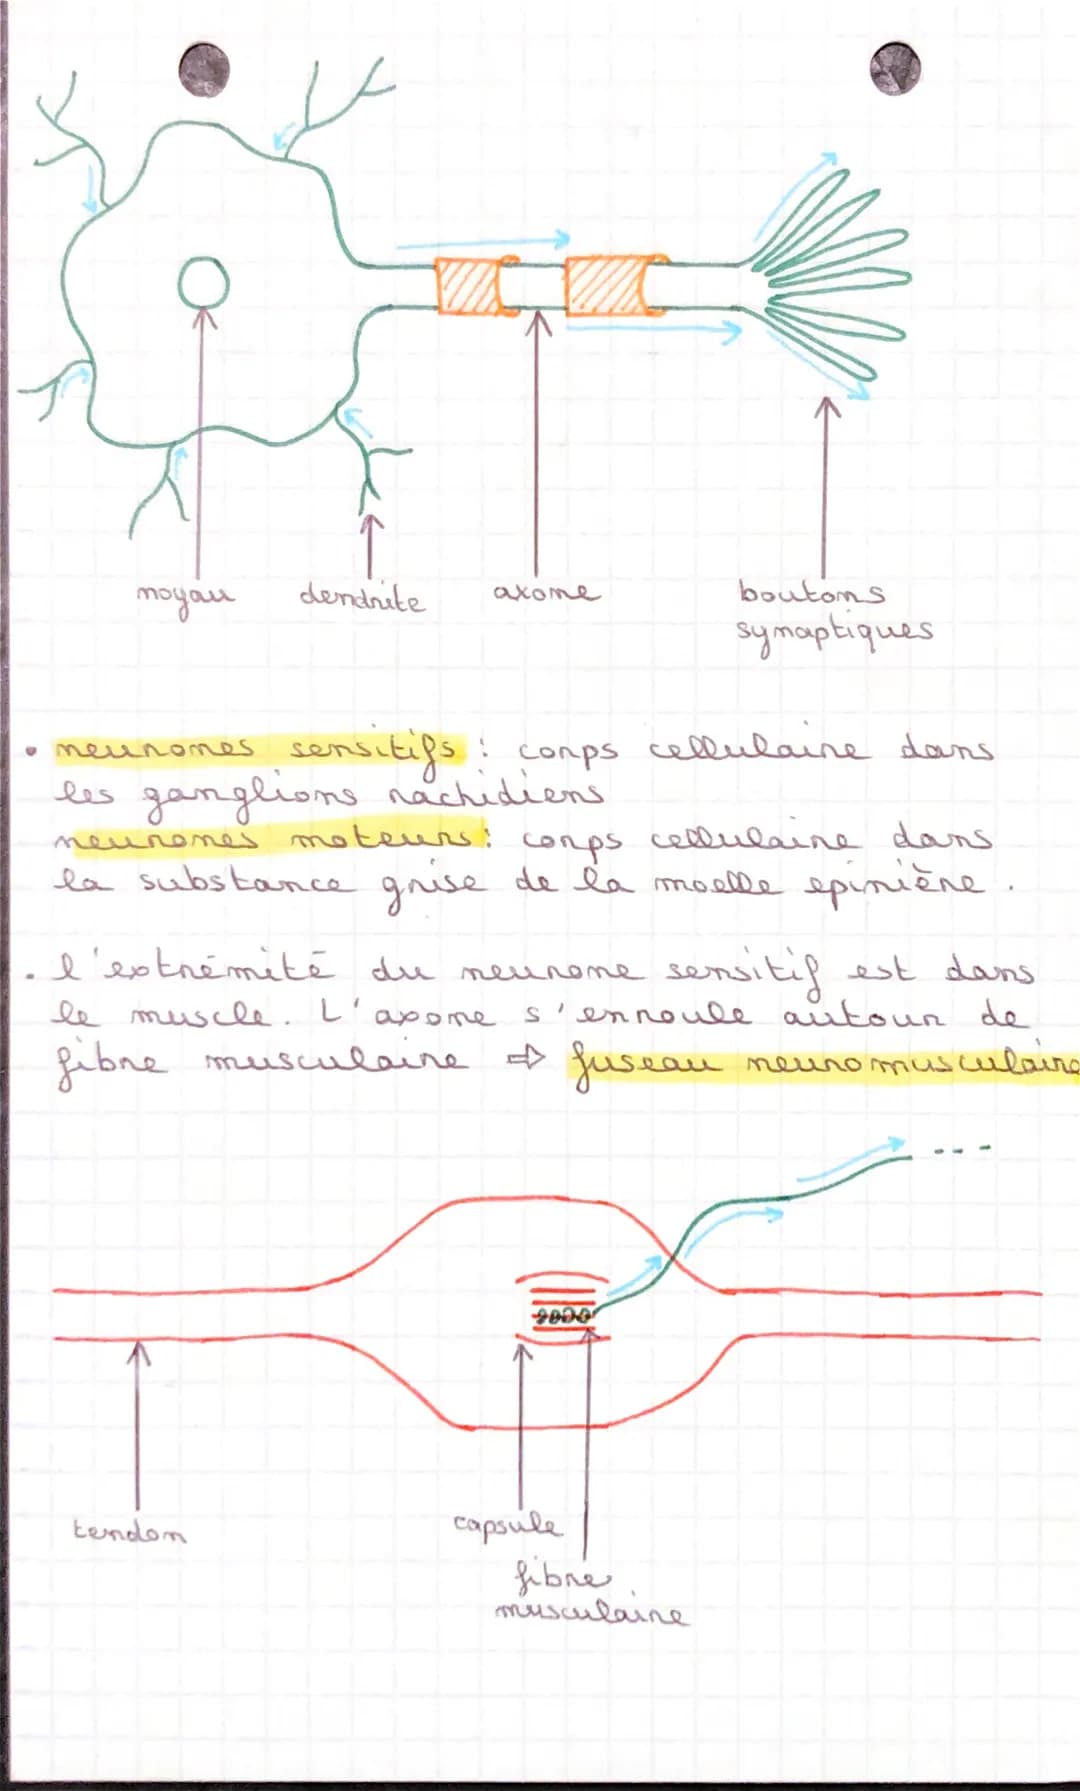 noyau
dendrite
axone
boutons
synaptiques
• neurones sensitifs : corps cellulaire dans
les ganglions rachidiens
neurones moteurs : corps cellulaire dans
la substance grise de la moelle epinière .
. l'extrémité du neurone sensitif est dans
le muscle. L'axone s'enroule autour de
fibre musculaire ⇨ fuseau neuromusculaire
tendon
capsule
fibre
musculaire